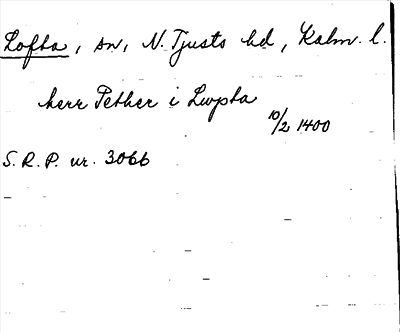 Lofta, sn, N. Tjusts hd, Kalm. l.
herr Pether i Lwpta
10/2 1400
S.R.P. nr. 3066